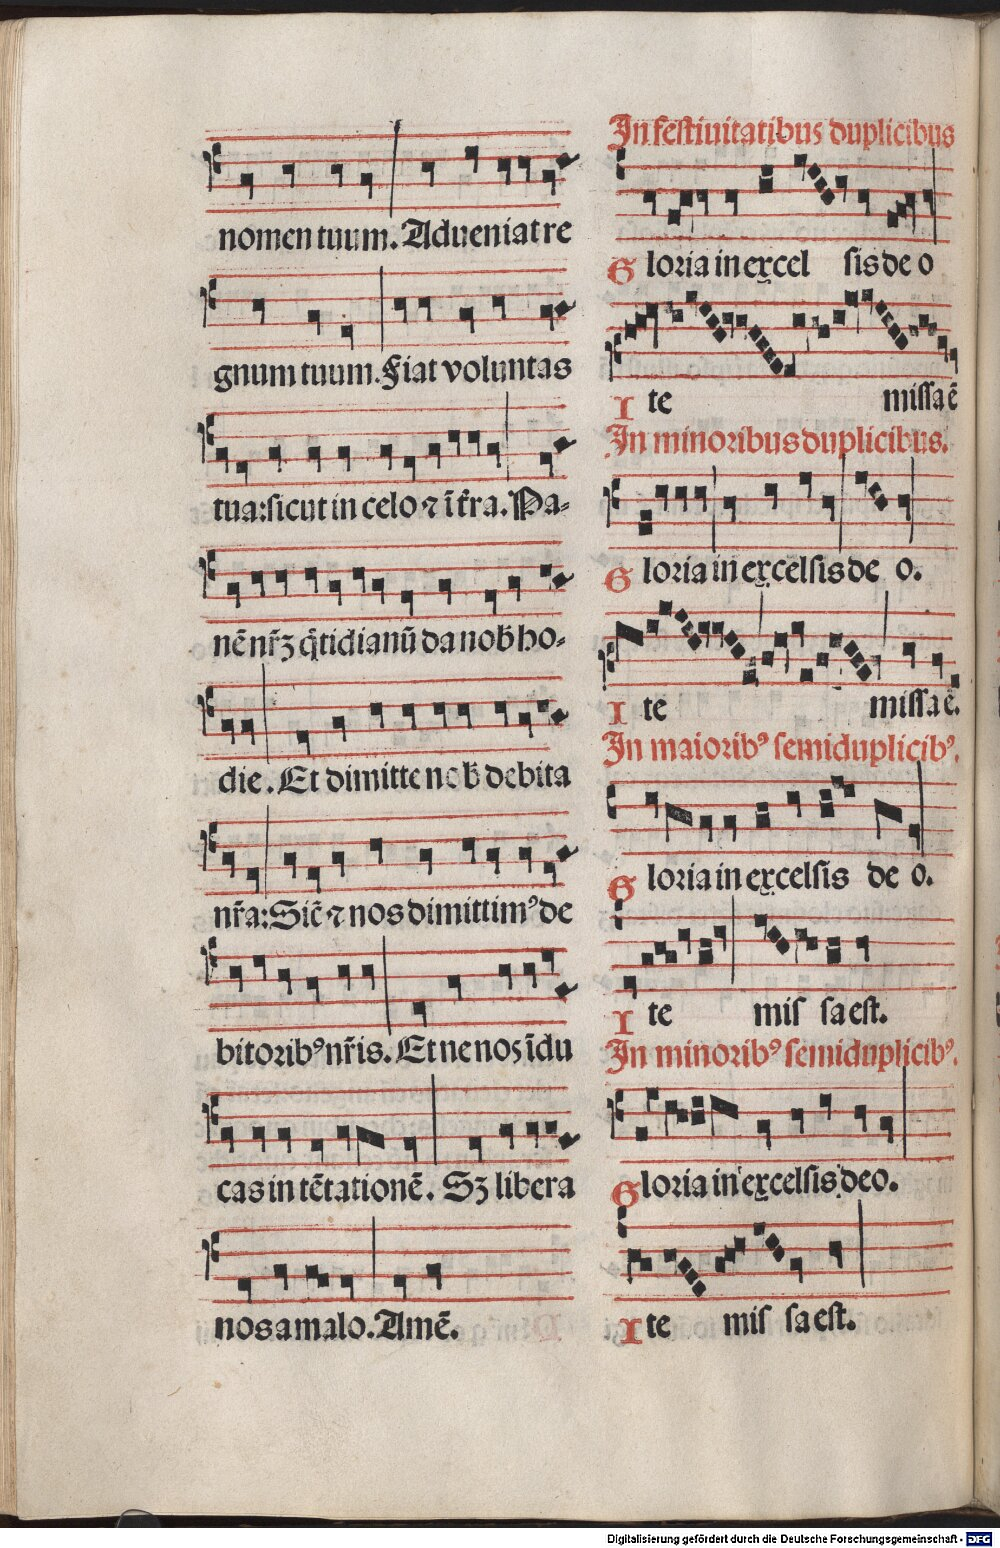 nomen tuum. Adueniat re
gnum tuum. Fiat voluntas
tua: sicut in celo ⁊ ī t̄ra. Pa-
nē nr̄ꝫ q̄tidianū da nob̄ ho-
die. Et dimitte nob̄ debita
nr̄a: Sic̄ ⁊ nos dimittimꝰ de
bitoribꝰ nr̄is. Et ne nos īdu
cas in tētationē. Sꝫ libera
nos a malo. Amē.
In festiuitatibus duplicibus
Gloria in excel sis de o
Ite missa ē
In minoribus duplicibus.
Gloria in excelsis de o.
Ite missa ē.
In maioribꝰ semiduplicibꝰ.
Gloria in excelsis de o.
Ite mis sa est.
In minoribꝰ semiduplicibꝰ.
Gloria in excelsis deo.
Ite mis sa est.
Digitalisierung gefördert durch die Deutsche Forschungsgemeinschaft - DFG